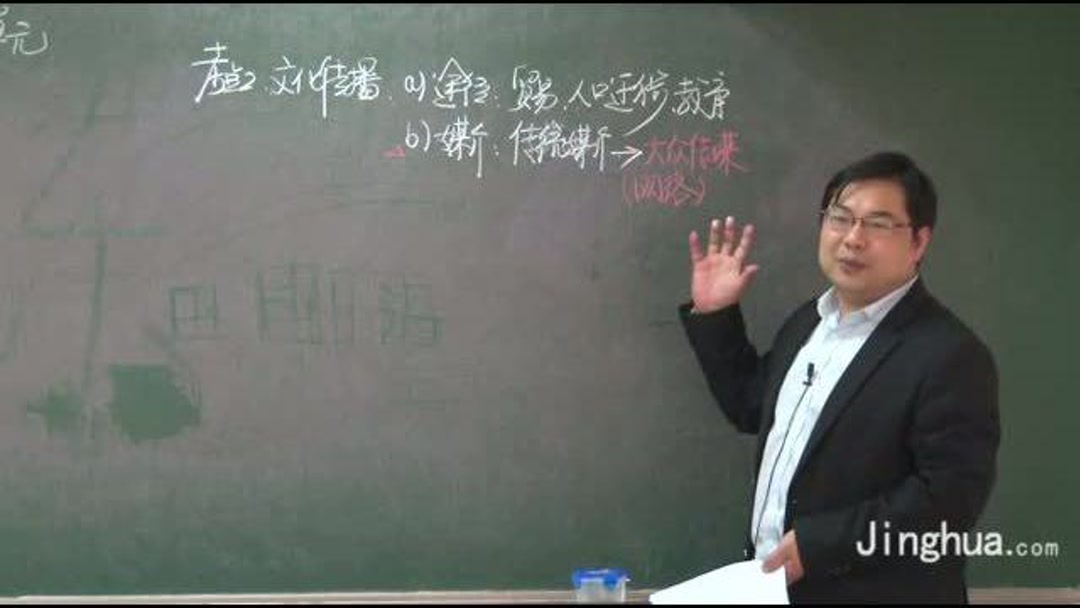 单元
考点2:文化传播. a)途径:贸易、人口迁徙、教育
b)媒介:传统媒介→大众传媒
(网络)
Jinghua.com